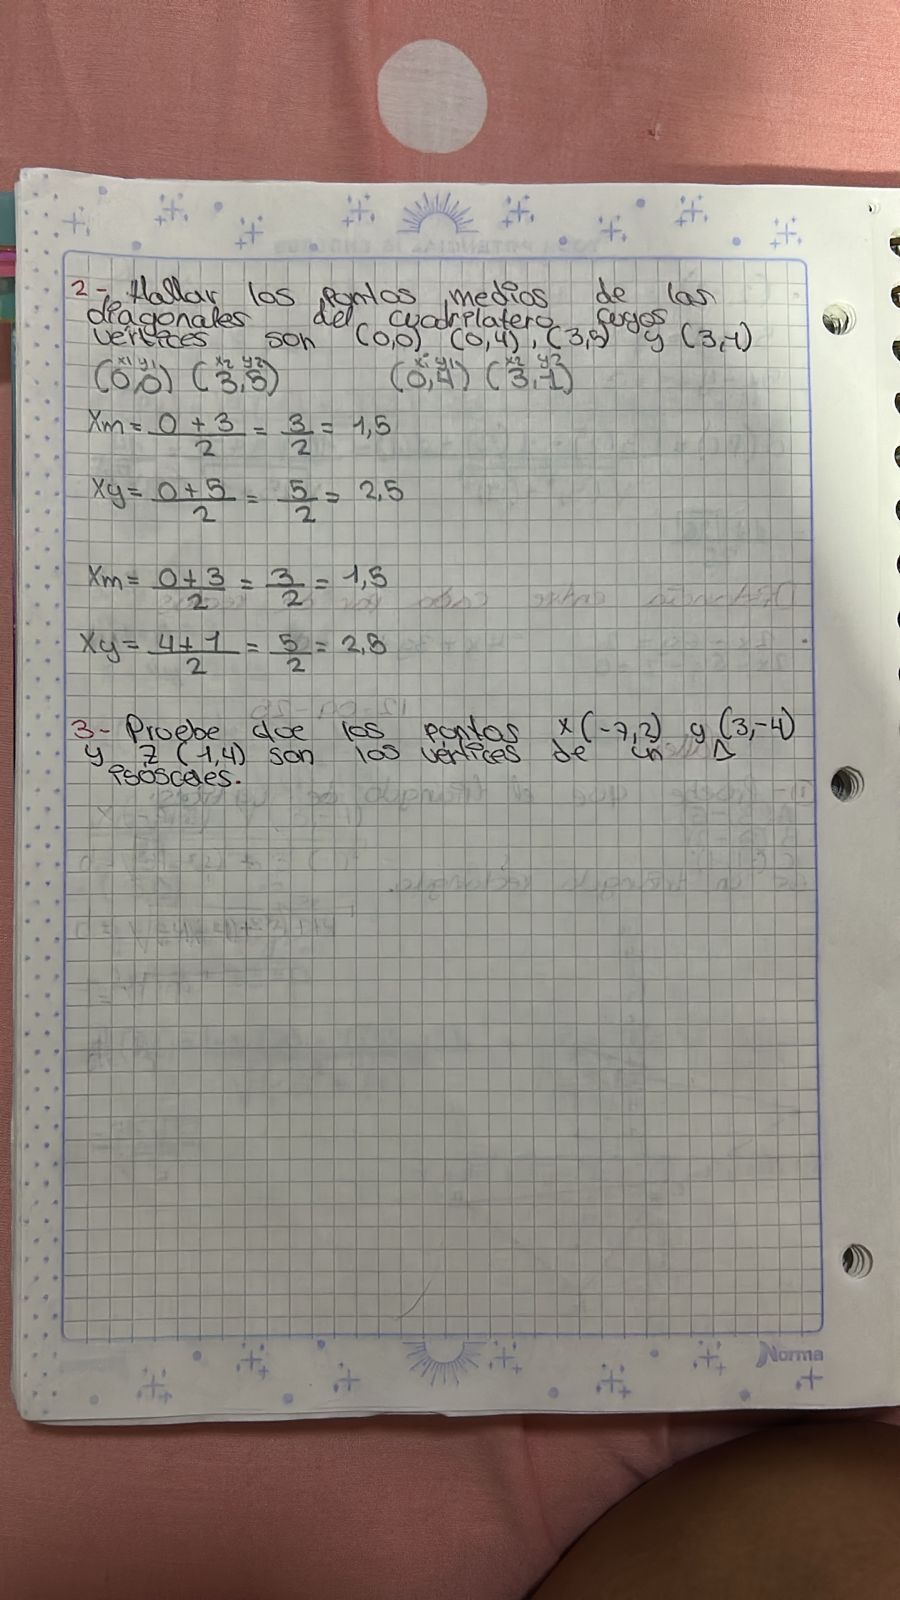 2- Hallar los puntos medios de las
diagonales del cuadrilatero cuyos
vertices son (0,0) (0,4), (3,5) y (3,-1)
x1 y1 x2 y2 x1 y1 x2 y2
(0,0) (3,5) (0,4) (3,-1)
Xm = 0 + 3 / 2 = 3 / 2 = 1,5
Xy = 0 + 5 / 2 = 5 / 2 = 2,5
Xm = 0 + 3 / 2 = 3 / 2 = 1,5
Xy = 4 + 1 / 2 = 5 / 2 = 2,5
3- Pruebe que los puntos x(-7,2) y (3,-4)
y z (1,4) son los vertices de un Δ
isosceles.
Norma